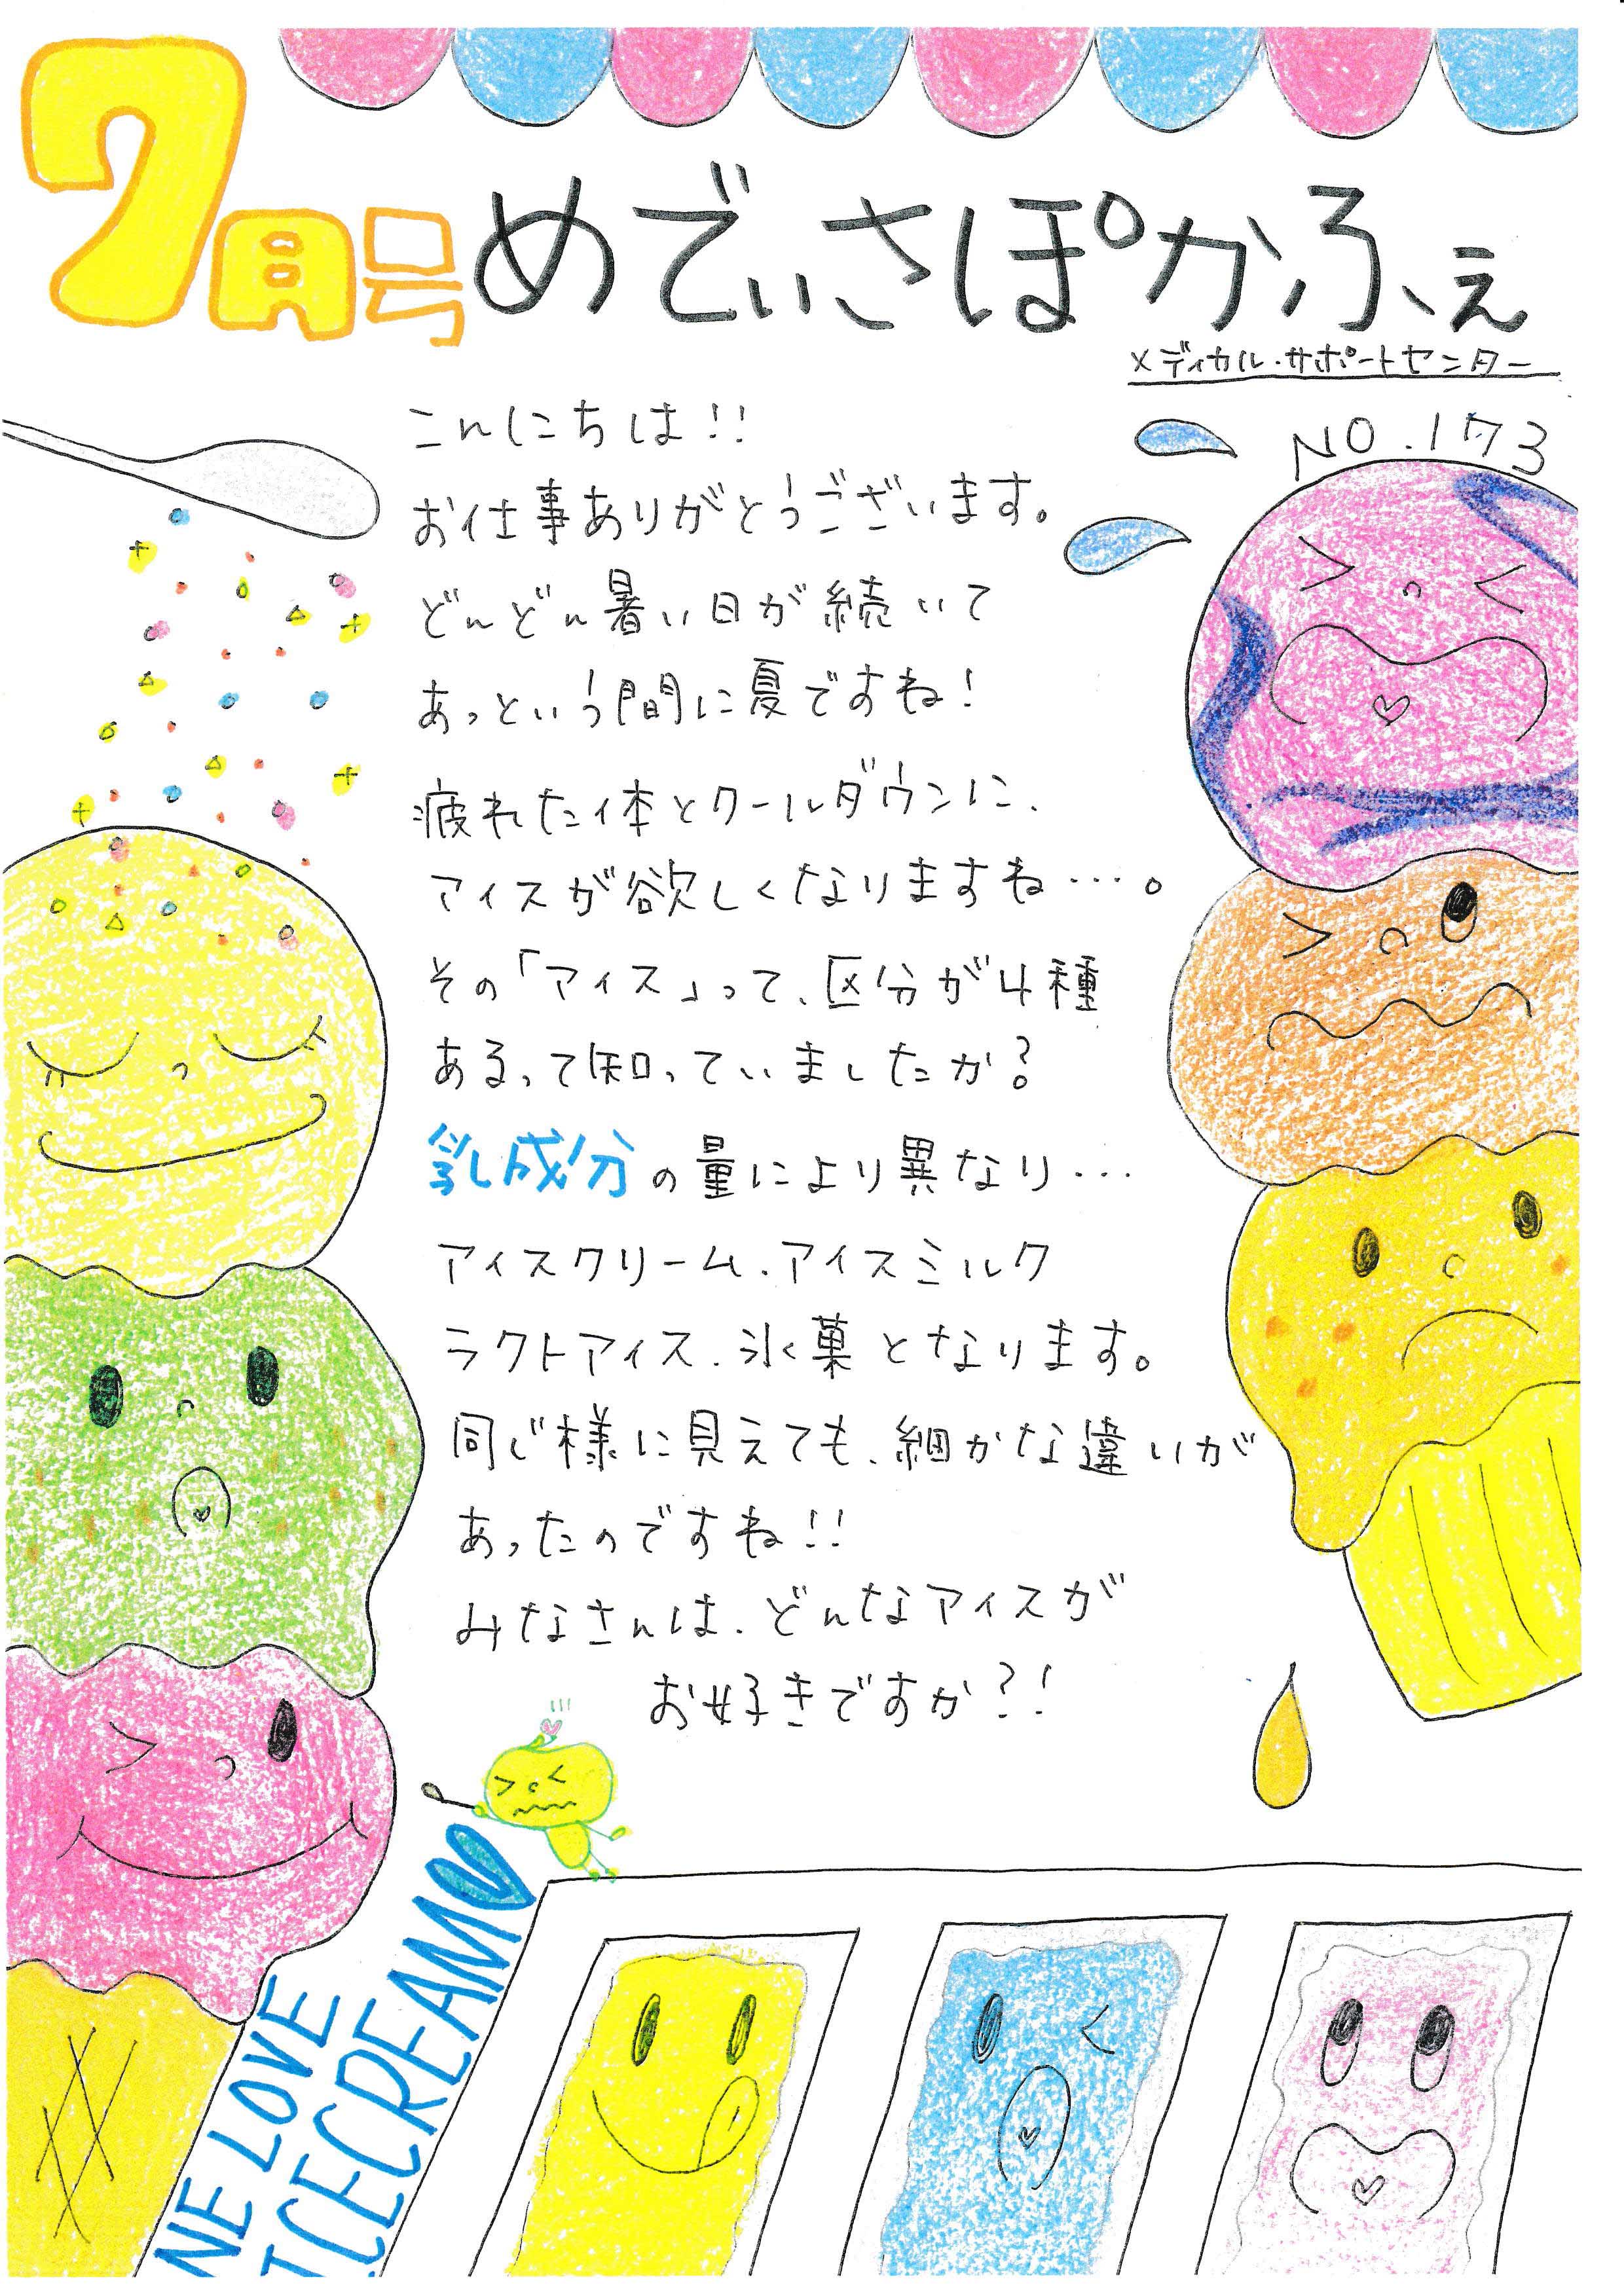 7月号 めでぃさぽかふぇ
メディカル・サポートセンター
NO.173
こんにちは!!
お仕事ありがとうございます。
どんどん暑い日が続いて
あっという間に夏ですね!
疲れた体とクールダウンに、
アイスが欲しくなりますね…。
その「アイス」って、区分が4種
あるって知っていましたか?
乳成分の量により異なり…
アイスクリーム、アイスミルク
ラクトアイス、氷菓となります。
同じ様に見えても、細かな違いが
あったのですね!!
みなさんは、どんなアイスが
お好きですか?!
WE LOVE
ICECREAM